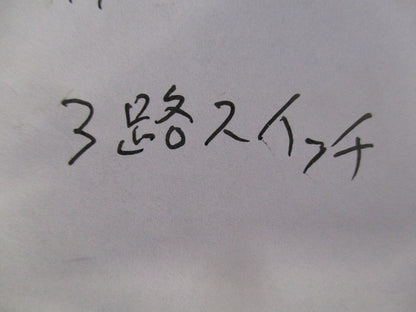 3路スイッチ